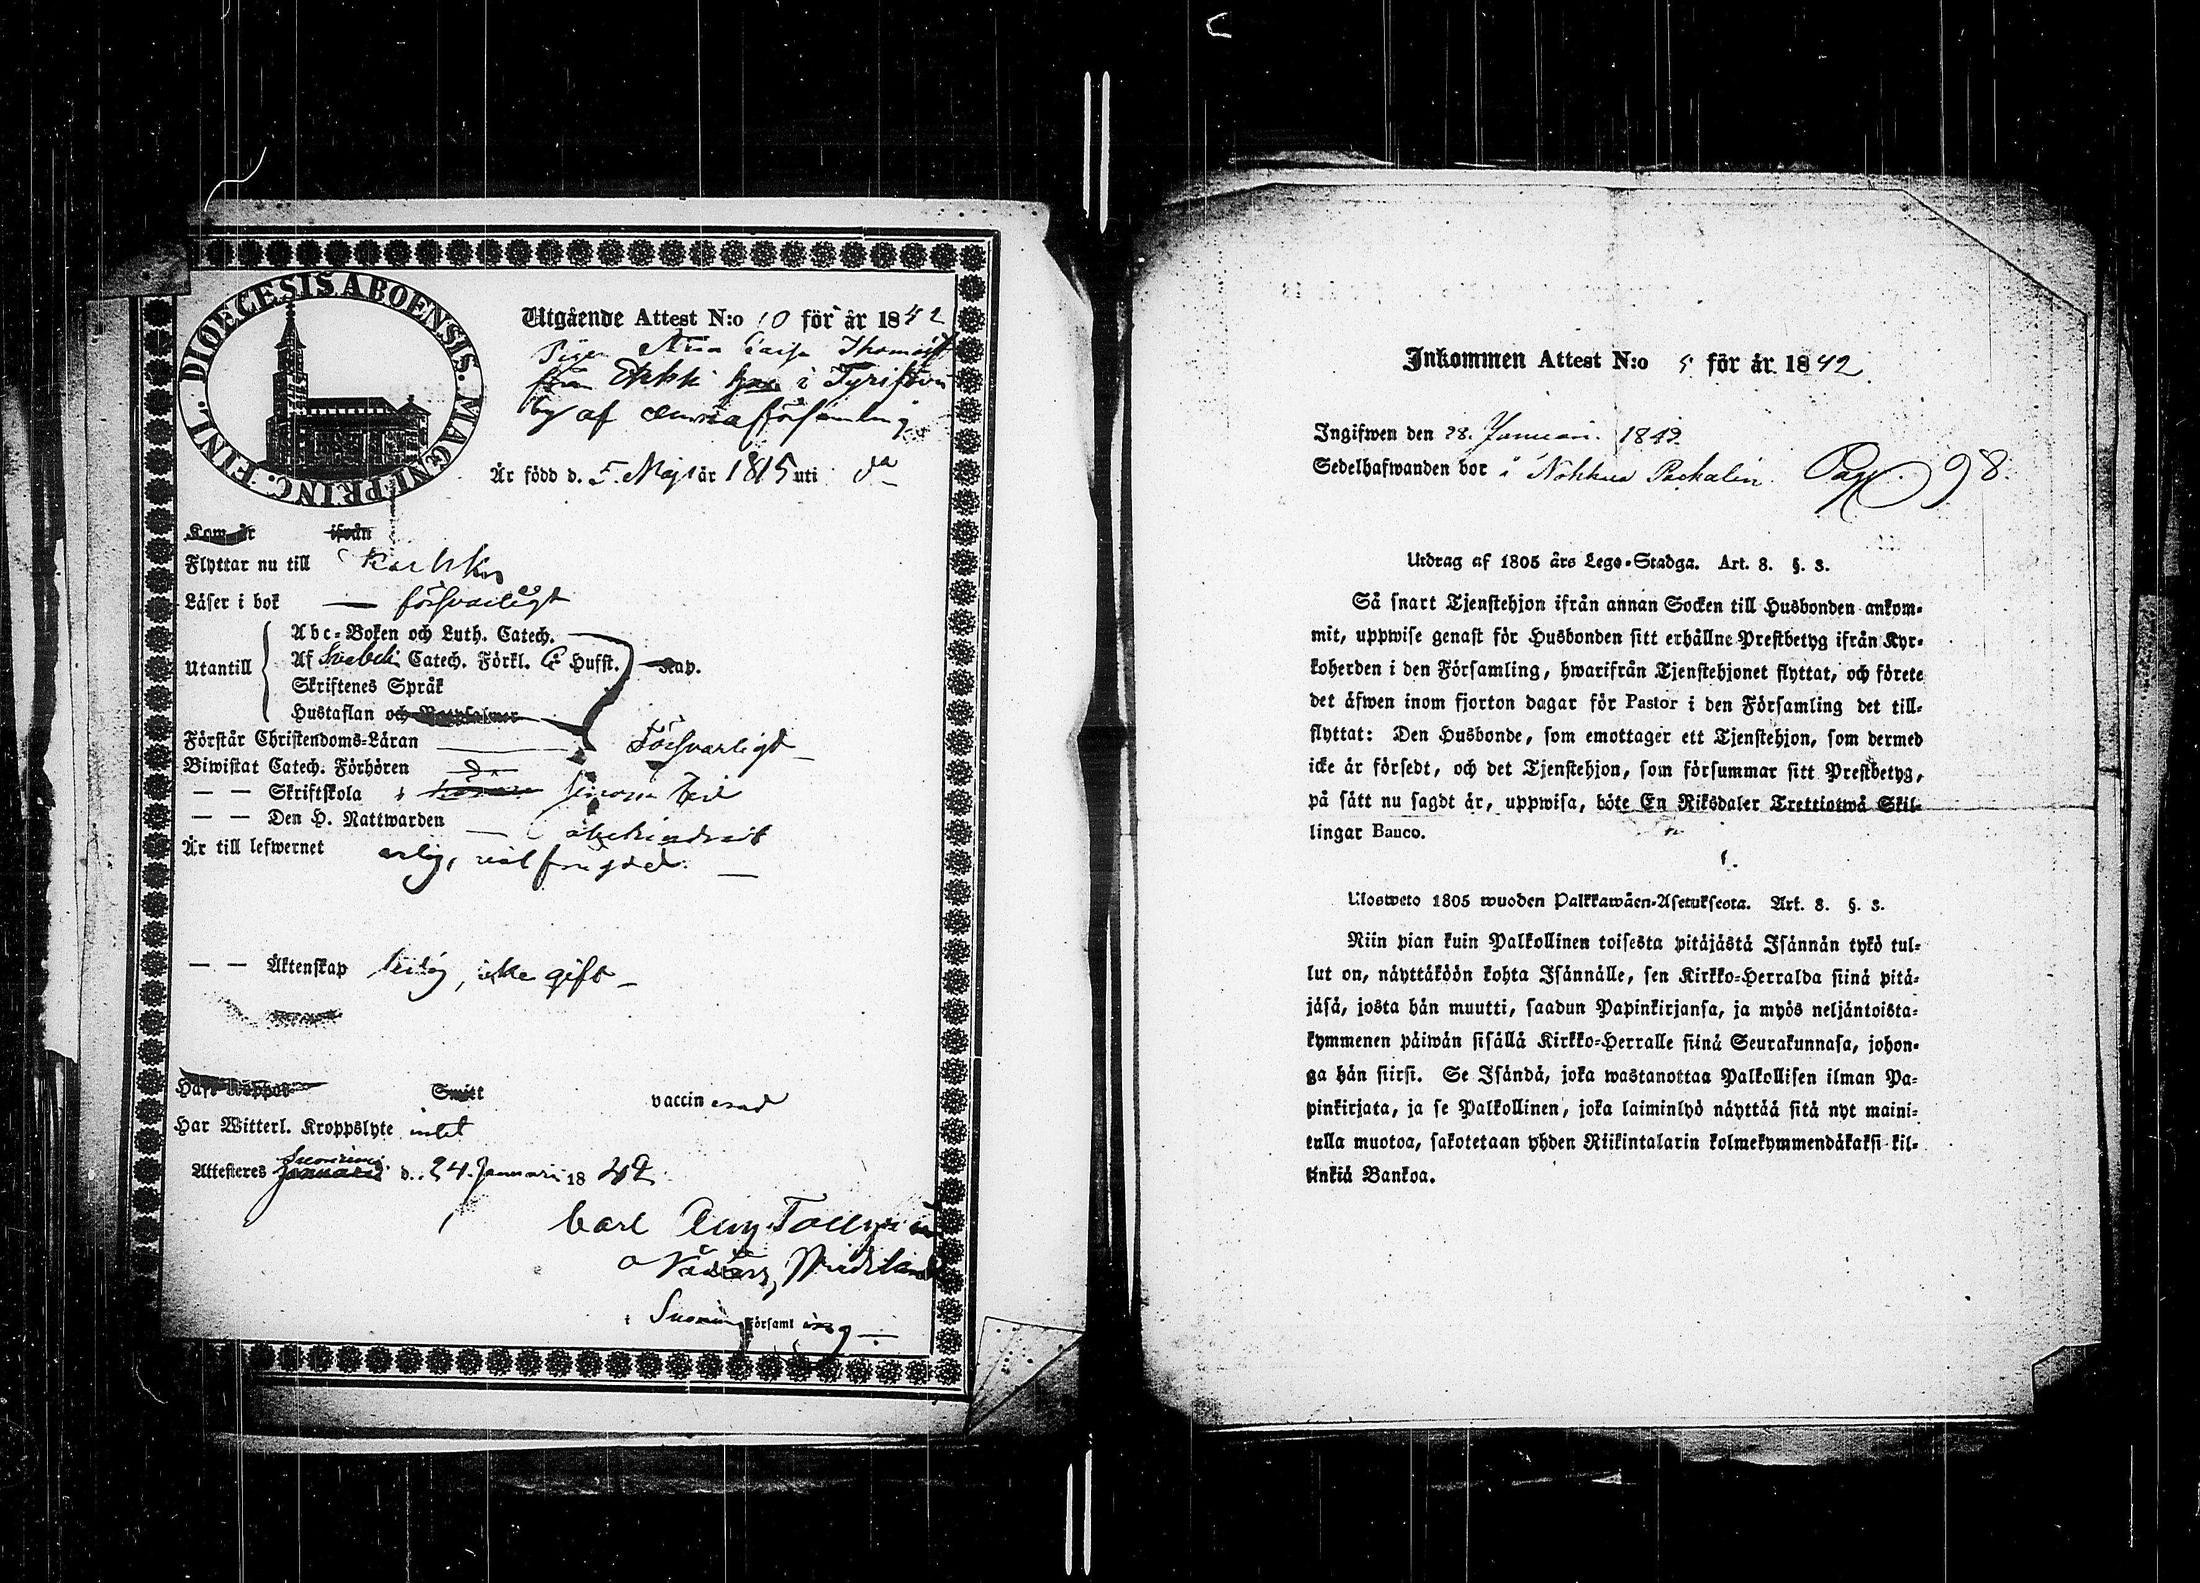 DIOECESIS ABOENSIS. MAGNI PRINC. FINL.
Utgående Attest N:o 10 för år 1842
Pigan Caisa Thomasdr
från i
by af församling
Är född d. 5. Maji år 1815 uti da
Kom år ifrån
Flyttar nu till Karkku
Läser i bok — försvarligt
Utantill
Abc-Boken och Luth. Catech.
Af Svebelii Catech. Förkl. Hufst. Kap.
Skriftenes Språk
Hustaflan och Botpsalmer
Förstår Christendoms-Läran Försvarligt
Biwistat Catech. Förhören Da
— — Skriftskola i sinom tid
— — Den H. Nattwarden — obehindradt
Är till lefwernet ärlig, väl frejdad. —
— — Äktenskap ledig, icke gift —
Haft Koppor Smitt vaccinerad
Har Witterl. Kroppslyte intet
Attesteres Suoniemi d. 24. Januari 1842
Carl Aug.
i Suoniemi Församling
Inkommen Attest N:o 5 för år 1842.
Ingifwen den 28. Januari. 1842
Sedelhafwanden bor i Nohkua Pag. 98.
Utdrag af 1805 års Lego-Stadga. Art. 8. §. 3.
Så snart Tjenstehjon ifrån annan Socken till Husbonden ankom-
mit, uppwise genast för Husbonden sitt erhållne Prestbetyg ifrån Kyr-
koherden i den Församling, hwarifrån Tjenstehjonet flyttat, och förete
det äfwen inom fjorton dagar för Pastor i den Församling det till-
flyttat: Den Husbonde, som emottager ett Tjenstehjon, som dermed
icke är försedt, och det Tjenstehjon, som försummar sitt Prestbetyg,
på sätt nu sagdt är, uppwisa, böte En Riksdaler Trettiotwå Skil-
lingar Banco.
Ulosweto 1805 wuoden Palkkawäen-Asetuksesta. Art. 8. §. 3.
Niin pian kuin Palkollinen toisesta pitäjästä Isännän tykö tul-
lut on, näyttäköön kohta Isännälle, sen Kirkko-Herralda siinä pitä-
jäsä, josta hän muutti, saadun Papinkirjansa, ja myös neljäntoista-
kymmenen päiwän sisällä Kirkko-Herralle siinä Seurakunnasa, johon-
ga hän siirsi. Se Isändä, joka wastanottaa Palkollisen ilman Pa-
pinkirjata, ja se Palkollinen, joka laiminlyö näyttää sitä nyt maini-
tulla muotoa, sakotetaan yhden Riikintalarin kolmekymmendäkaksi kil-
linkiä Bankoa.